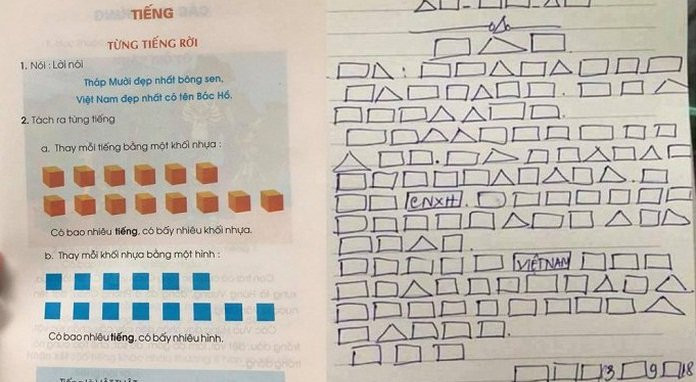 TIẾNG
TỪNG TIẾNG RỜI
1. Nói : Lời nói
Tháp Mười đẹp nhất bông sen,
Việt Nam đẹp nhất có tên Bác Hồ.
2. Tách ra từng tiếng
a. Thay mỗi tiếng bằng một khối nhựa :
Có bao nhiêu tiếng, có bấy nhiêu khối nhựa.
b. Thay mỗi khối nhựa bằng một hình :
Có bao nhiêu tiếng, có bấy nhiêu hình.
CNXH
VIỆTNAM
3 9 18